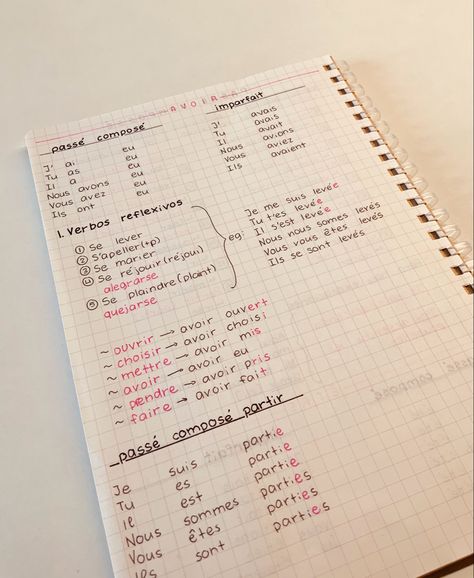 AVOIR
passé composé
J' ai eu
Tu as eu
Il a eu
Nous avons eu
Vous avez eu
Ils ont eu
imparfait
J' avais
Tu avais
Il avait
Nous avions
Vous aviez
Ils avaient
1. Verbos reflexivos
① Se lever
② S'apeller(+p)
③ Se marier
④ Se réjouir (réjoui)
alegrarse
⑤ Se plaindre (plaint)
quejarse
eg:
Je me suis levée
Tu t'es levée
Il s'est levée
Nous nous somes levés
Vous vous êtes levés
Ils se sont levés.
~ ouvrir → avoir ouvert
~ choisir → avoir choisi
~ mettre → avoir mis
~ avoir → avoir eu
~ prendre → avoir pris
~ faire → avoir fait
passé composé partir
Je suis partie
Tu es partie
Il est partie
Nous sommes parties
Vous êtes parties
Ils sont parties